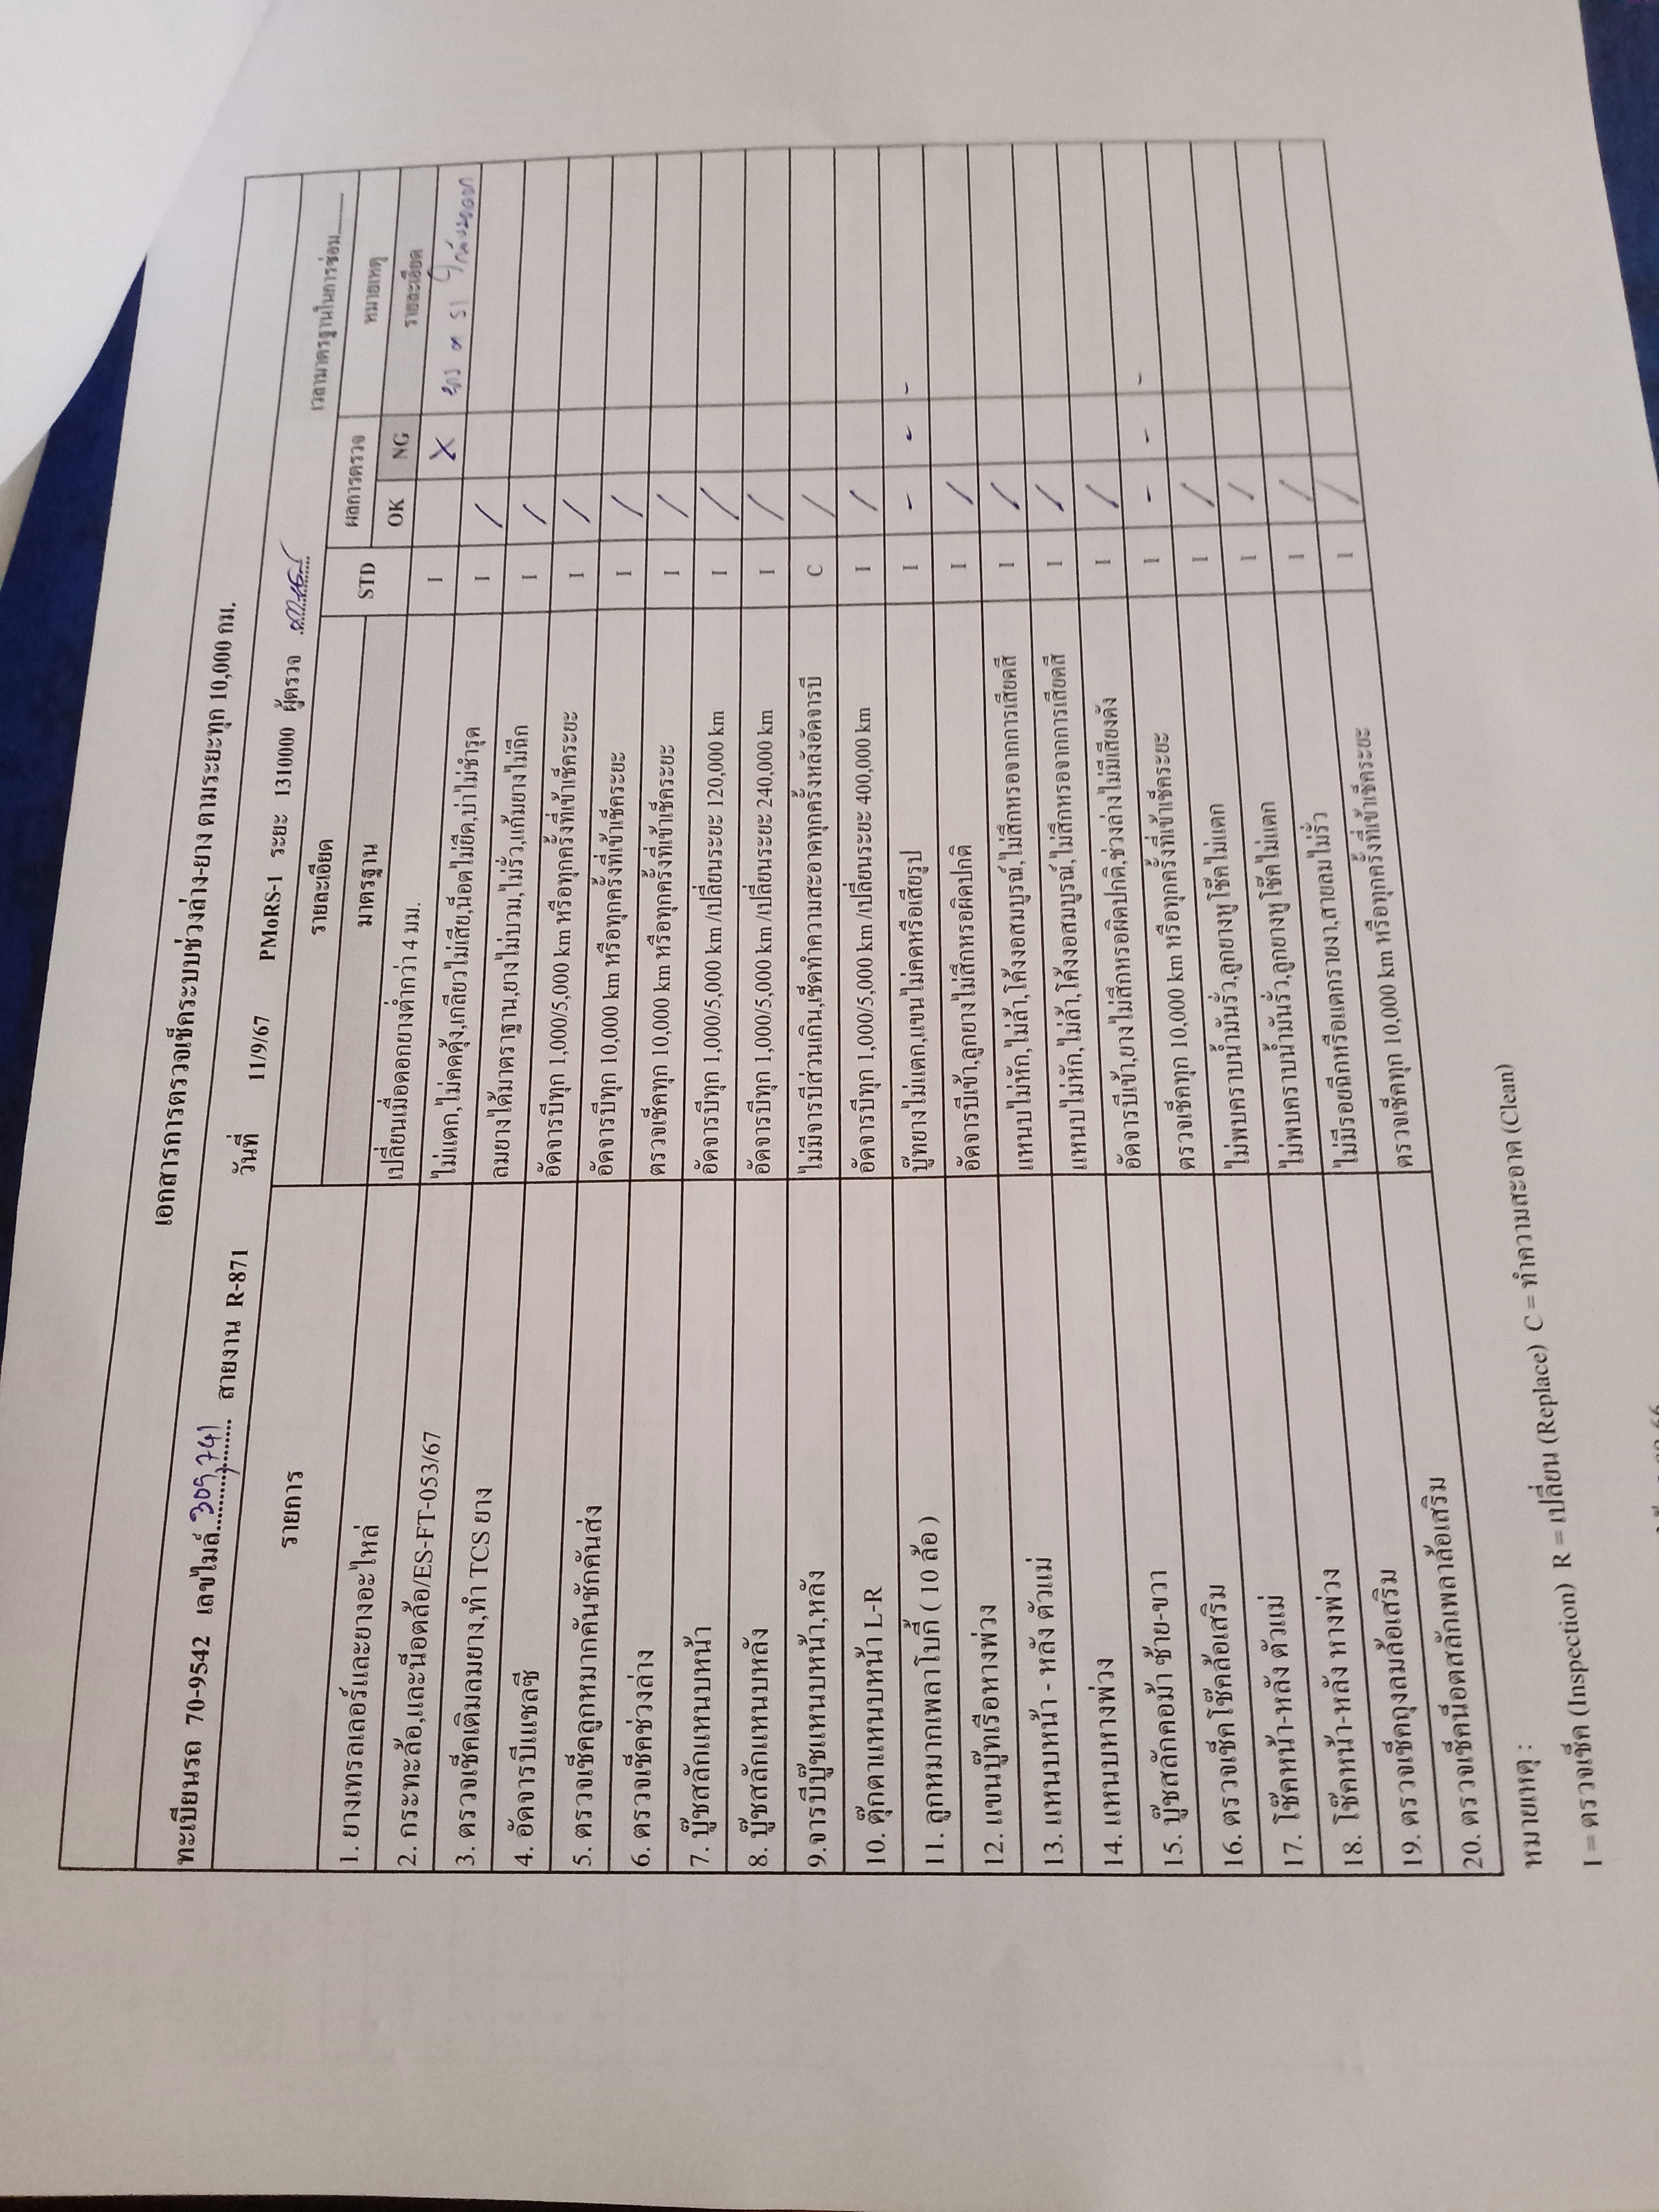 เอกสารการตรวจเช็คระบบช่วงล่าง-ยาง ตามระยะทุก 10,000 กม.
ทะเบียนรถ 70-9542 เลขไมล์ 309,741 สายงาน R-871 วันที่ 11/9/67 PMoRS-1 ระยะ 1310000 ผู้ตรวจ
เวลามาตรฐานในการซ่อม..........
รายการ รายละเอียด ผลการตรวจ หมายเหตุ
มาตรฐาน STD OK NG รายละเอียด
1. ยางเทรลเลอร์และยางอะไหล่ เปลี่ยนเมื่อดอกยางต่ำกว่า 4 มม. I X
2. กระทะล้อ,และน็อตล้อ/ES-FT-053/67 ไม่แตก,ไม่คดคุ้ง,เกลียวไม่เสีย,น็อตไม่ยืด,บ่าไม่ชำรุด I /
3. ตรวจเช็คเติมลมยาง,ทำ TCS ยาง ลมยางได้มาตราฐาน,ยางไม่บวม,ไม่รั่ว,แก้มยางไม่ฉีก I /
4. อัดจารบีแชลซี อัดจารบีทุก 1,000/5,000 km หรือทุกครั้งที่เข้าเช็คระยะ I /
5. ตรวจเช็คลูกหมากคันชักคันส่ง อัดจารบีทุก 10,000 km หรือทุกครั้งที่เข้าเช็คระยะ I /
6. ตรวจเช็คช่วงล่าง ตรวจเช็คทุก 10,000 km หรือทุกครั้งที่เข้าเช็คระยะ I /
7. บู๊ชสลักแหนบหน้า อัดจารบีทุก 1,000/5,000 km /เปลี่ยนระยะ 120,000 km I /
8. บู๊ชสลักแหนบหลัง อัดจารบีทุก 1,000/5,000 km /เปลี่ยนระยะ 240,000 km I /
9.จารบีบู๊ชแหนบหน้า,หลัง ไม่มีจารบีส่วนเกิน,เช็ดทำความสะอาดทุกครั้งหลังอัดจารบี C /
10. ตุ๊กตาแหนบหน้า L-R อัดจารบีทุก 1,000/5,000 km /เปลี่ยนระยะ 400,000 km I /
11. ลูกหมากเพลาโบกี้ ( 10 ล้อ ) บู๊ทยางไม่แตก,แขนไม่คดหรือเสียรูป I - - -
12. แขนบู๊ทเรือหางพ่วง อัดจารบีเข้า,ลูกยางไม่สึกหรอผิดปกติ I /
13. แหนบหน้า - หลัง ตัวแม่ แหนบไม่หัก,ไม่ล้า,โค้งงอสมบูรณ์,ไม่สึกหรอจากการเสียดสี I /
14. แหนบหางพ่วง แหนบไม่หัก,ไม่ล้า,โค้งงอสมบูรณ์,ไม่สึกหรอจากการเสียดสี I /
15. บู๊ชสลักคอม้า ซ้าย-ขวา อัดจารบีเข้า,ยางไม่สึกหรอผิดปกติ,ช่วงล่างไม่มีเสียงดัง I /
16. ตรวจเช็คโช๊คล้อเสริม ตรวจเช็คทุก 10,000 km หรือทุกครั้งที่เข้าเช็คระยะ I - - -
17. โช๊คหน้า-หลัง ตัวแม่ ไม่พบคราบน้ำมันรั่ว,ลูกยางหูโช๊คไม่แตก I /
18. โช๊คหน้า-หลัง หางพ่วง ไม่พบคราบน้ำมันรั่ว,ลูกยางหูโช๊คไม่แตก I /
19. ตรวจเช็คถุงลมล้อเสริม ไม่มีรอยฉีกหรือแตกรายงา,สายลมไม่รั่ว I /
20. ตรวจเช็คน็อตสลักเพลาล้อเสริม ตรวจเช็คทุก 10,000 km หรือทุกครั้งที่เข้าเช็คระยะ I /
หมายเหตุ :
I = ตรวจเช็ค (Inspection) R = เปลี่ยน (Replace) C = ทำความสะอาด (Clean)